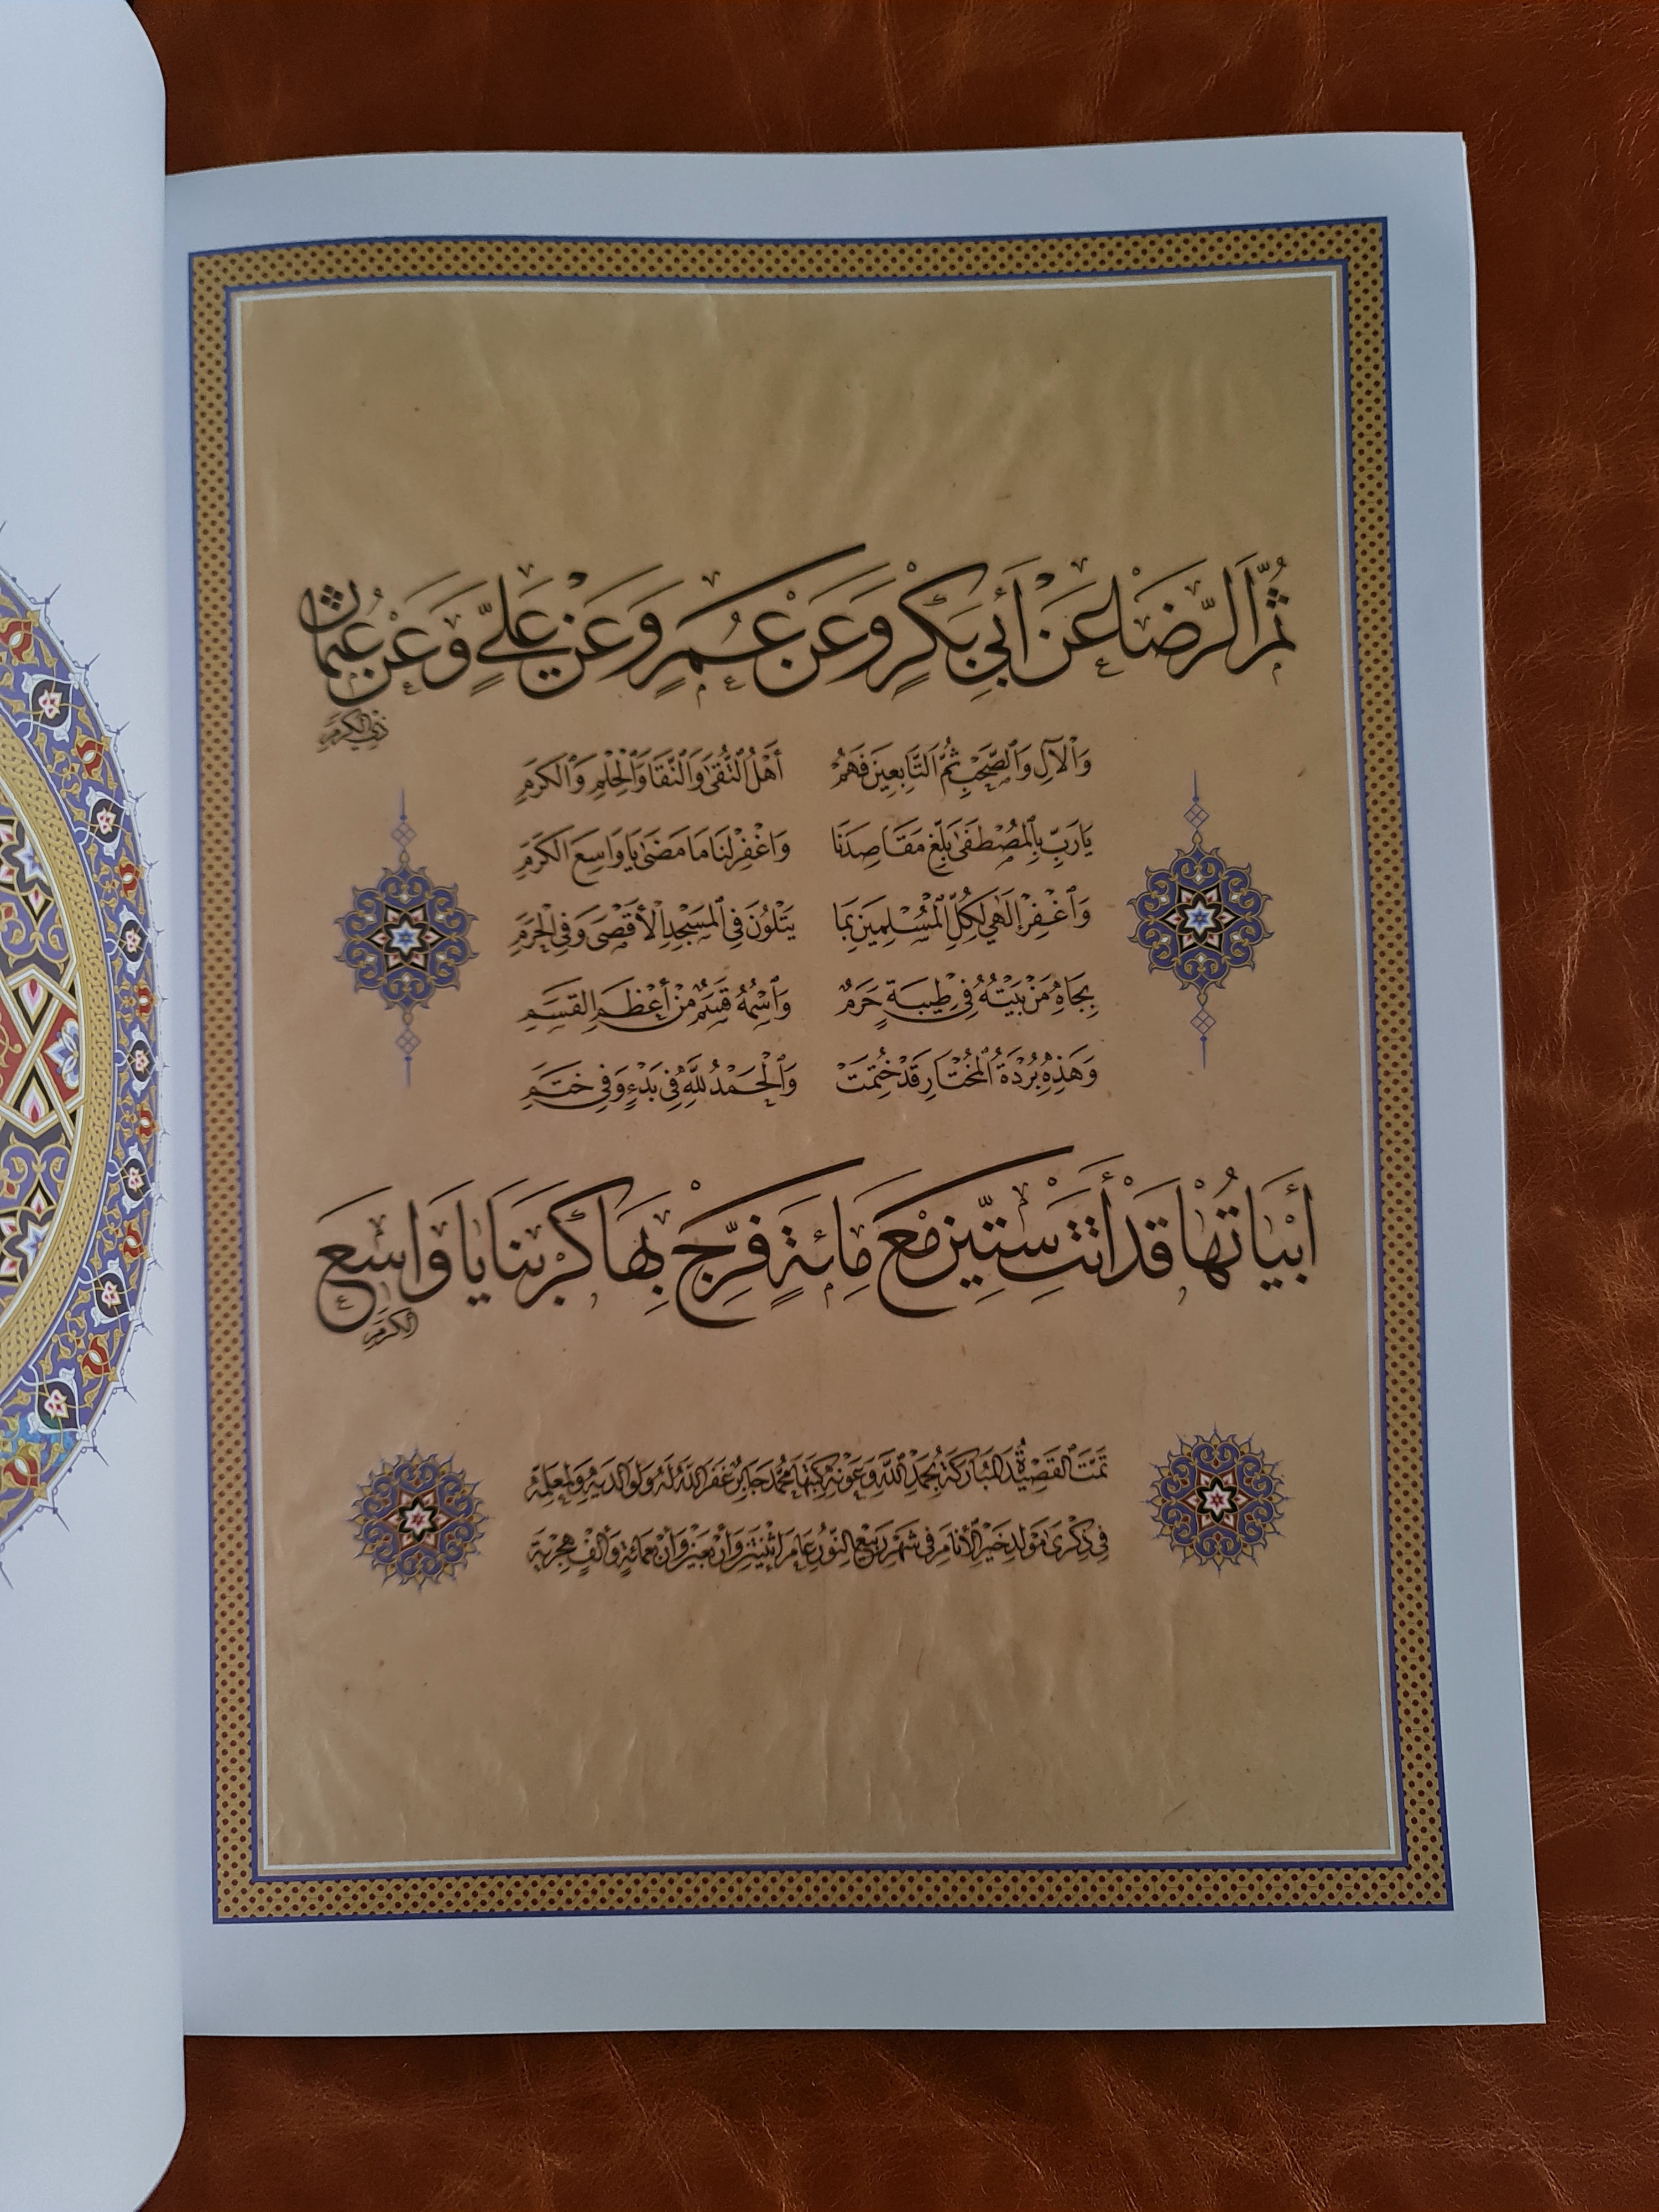 ثُمَّ الرِّضَا عَنْ أَبِي بَكْرٍ وَعَنْ عُمَرٍ وَعَنْ عَلِيٍّ وَعَنْ عُثْمَانَ
ذِي الْكَرَمِ
وَالْآلِ وَالصَّحْبِ ثُمَّ التَّابِعِينَ فَهُمْ أَهْلُ التُّقَى وَالنَّقَا وَالْحِلْمِ وَالْكَرَمِ
يَا رَبِّ بِالْمُصْطَفَى بَلِّغْ مَقَاصِدَنَا وَاغْفِرْ لَنَا مَا مَضَى يَا وَاسِعَ الْكَرَمِ
وَاغْفِرْ إِلَهِي لِكُلِّ الْمُسْلِمِينَ بِمَا يَتْلُونَ فِي الْمَسْجِدِ الْأَقْصَى وَفِي الْحَرَمِ
بِجَاهِ مَنْ بَيْتُهُ فِي طِيبَةٍ حَرَمٌ وَاسْمُهُ قَسَمٌ مِنْ أَعْظَمِ الْقَسَمِ
وَهَذِهِ بُرْدَةُ الْمُخْتَارِ قَدْ خُتِمَتْ وَالْحَمْدُ لِلَّهِ فِي بَدْءٍ وَفِي خَتَمِ
أَبْيَاتُهَا قَدْ أَتَتْ سِتِّينَ مَعْ مِائَةٍ فَرِّجْ بِهَا كَرْبَنَا يَا وَاسِعَ
الْكَرَمِ
تَمَّتِ الْقَصِيدَةُ الْمُبَارَكَةُ بِحَمْدِ اللَّهِ وَعَوْنِهِ كَتَبَهَا مُحَمَّد جَابِرْ غَفَرَ اللَّهُ لَهُ وَلِوَالِدَيْهِ وَلِمُعَلِّمِهِ
فِي ذِكْرَى مَوْلِدِ خَيْرِ الْأَنَامِ فِي شَهْرِ رَبِيعِ النُّورِ عَامَ اثْنَيْنِ وَأَرْبَعِينَ وَأَرْبَعِمِائَةٍ وَأَلْفٍ هِجْرِيَّة